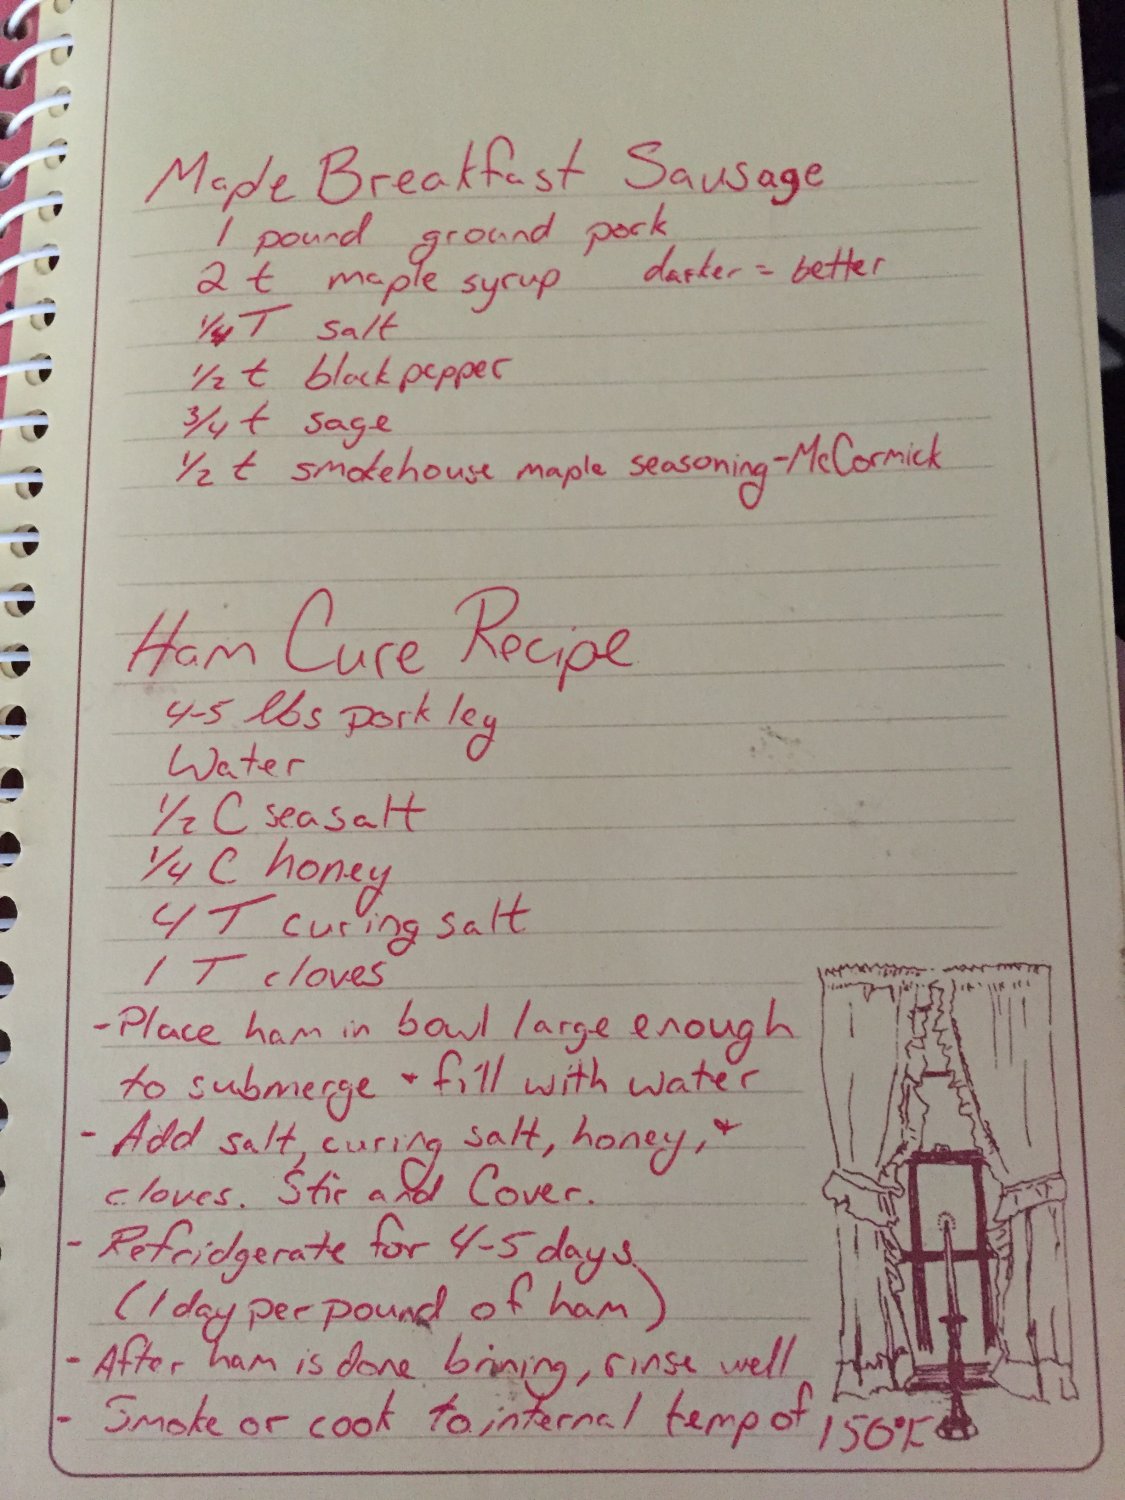 Maple Breakfast Sausage
1 pound ground pork
2 t maple syrup darker = better
1/4 T salt
1/2 t black pepper
3/4 t sage
1/2 t smokehouse maple seasoning - McCormick
Ham Cure Recipe
4-5 lbs pork leg
Water
1/2 C sea salt
1/4 C honey
4 T curing salt
1 T cloves
- Place ham in bowl large enough
to submerge + fill with water
- Add salt, curing salt, honey, +
cloves. Stir and Cover.
- Refridgerate for 4-5 days
(1 day per pound of ham)
- After ham is done brining, rinse well
- Smoke or cook to internal temp of 150°F